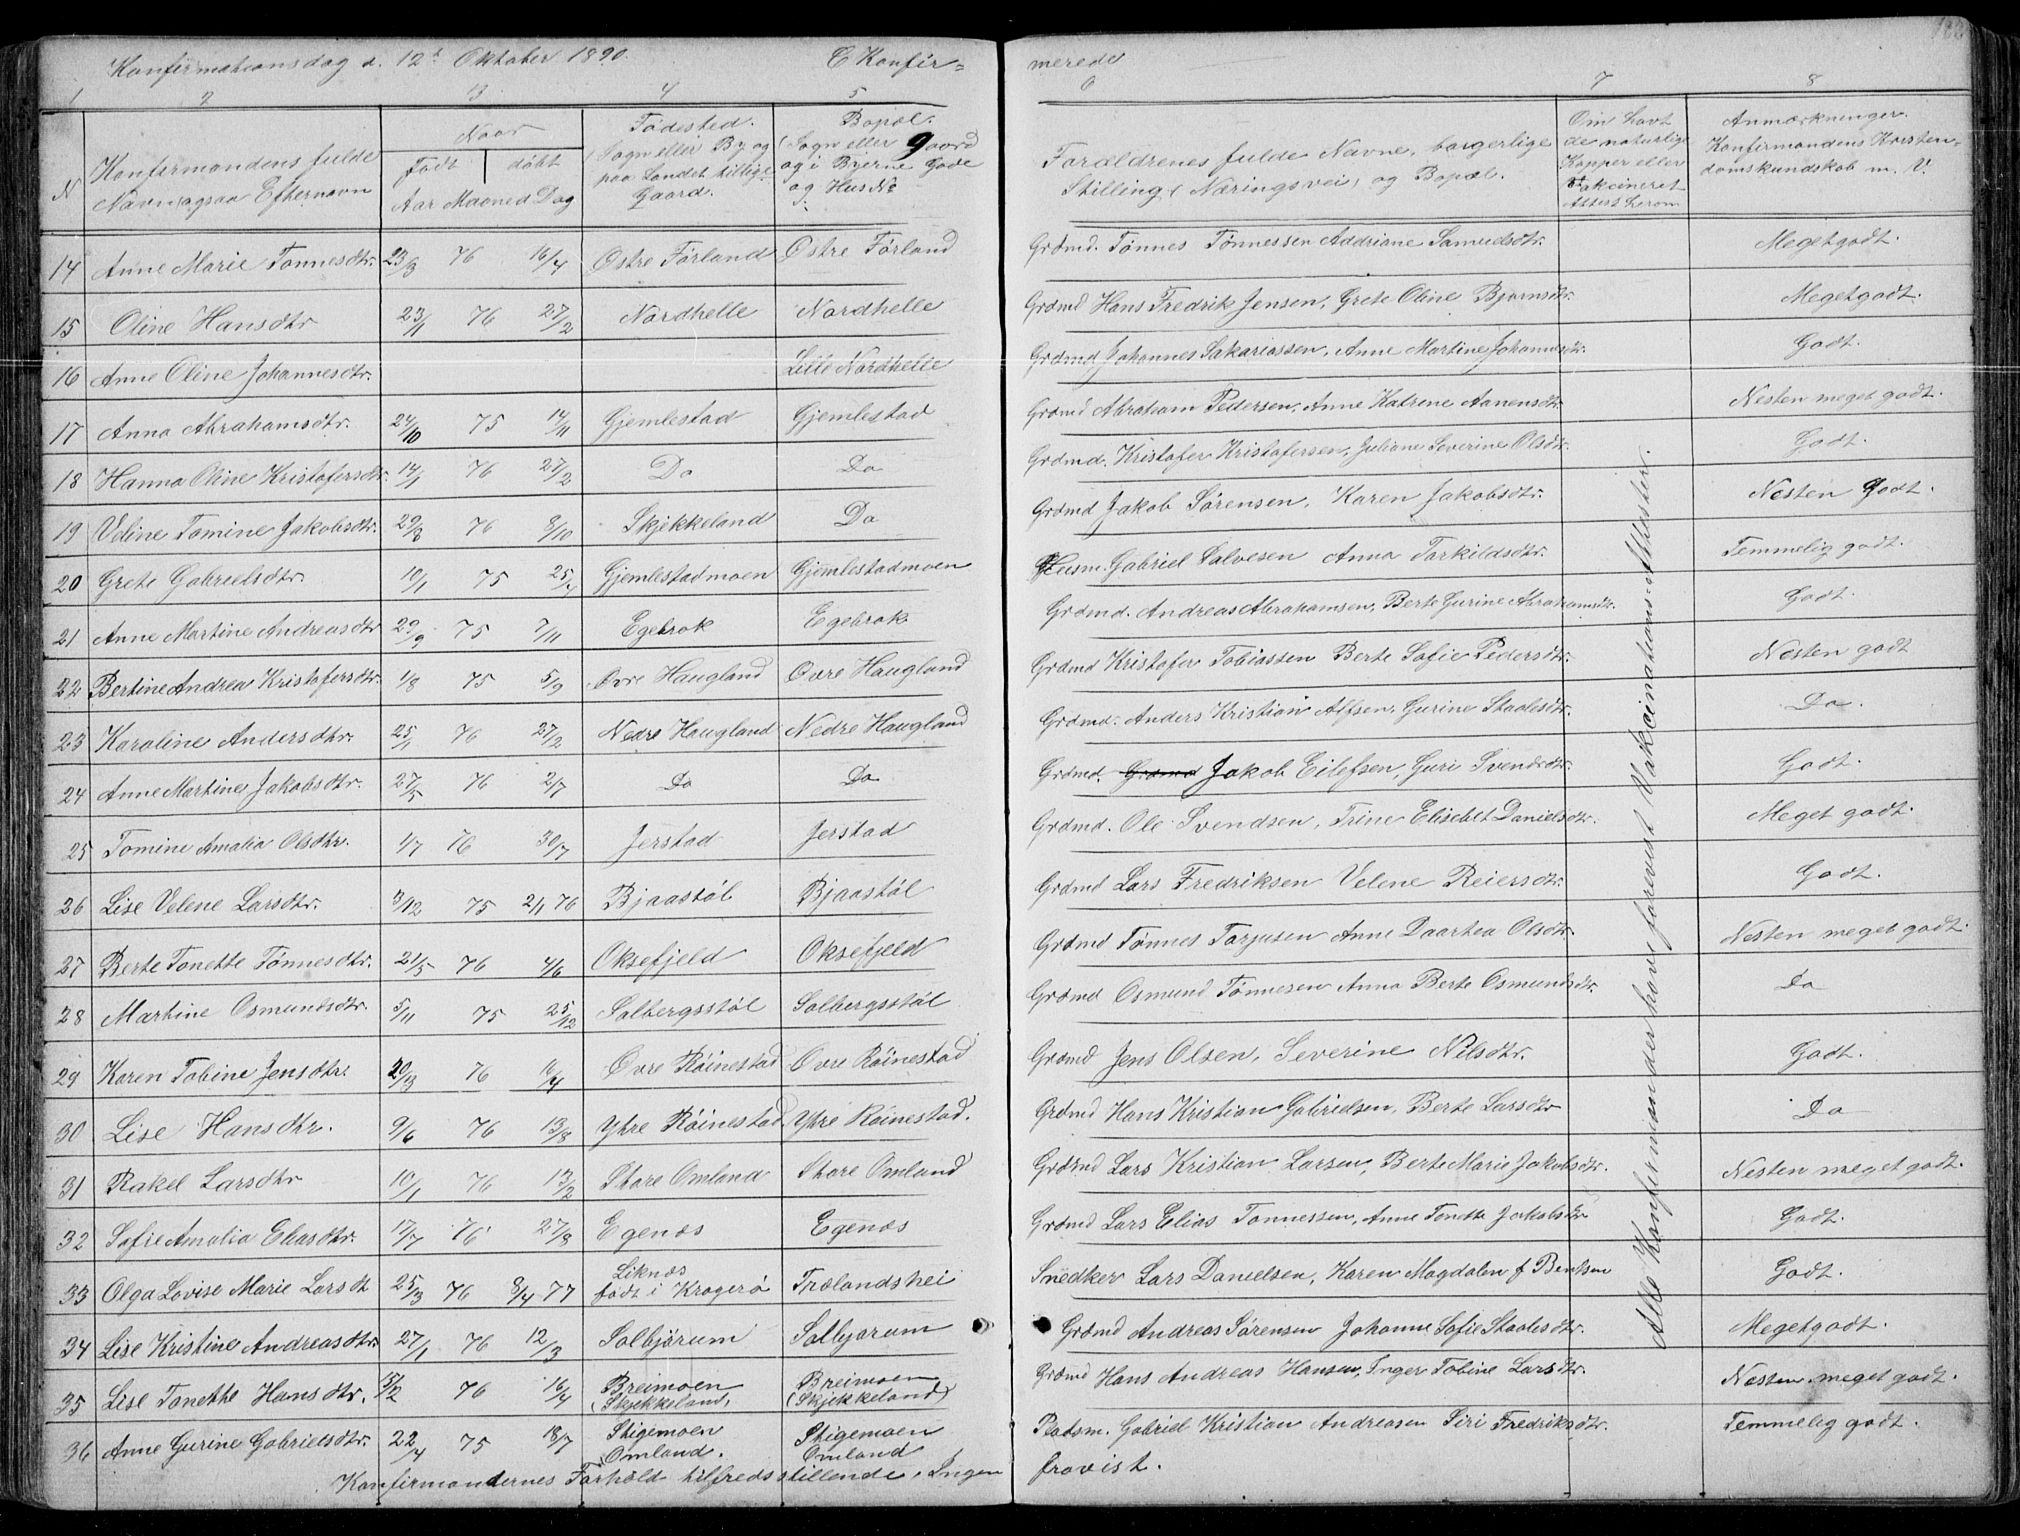 Konfirmationsdag d. 12te Oktober 1890. C Konfir=merede
1 2 3 4 5 6 7 8
N
Konfirmandens fulde Navn ogsaa Efternavn
Naar
Født døbt
Aar Maaned Dag
Fødested. (Sogn eller By og paa Landet tillige Gaard.
Bopæl. (Sogn eller Gaard og i Byerne Gade og Hus No
Forældrenes fulde Navne, borgerlige Stilling (Næringsvei) og Bopæl.
Om havt de naturlige Kopper eller Vakcineret Attest herom
Anmærkninger. Konfirmandens Kristendomskundskab m. V.
14 Anne Marie Tønnesdtr. 23/3 76 16/4 Østre Førland Østre Førland Grdmd. Tønnes Tønnessen Addriane Samuelsdtr. Megetgodt.
15 Oline Hansdtr 23/1 76 27/2 Nordhelle Nordhelle Grdmd Hans Fredrik Jensen, Grete Oline Bjørnsdtr. Megetgodt.
16 Anne Oline Johannesdtr. Lille Nordhelle Grdmd Johannes Sakariassen, Anne Martine Johannesdtr. Godt.
17 Anna Abrahamsdtr. 24/10 75 14/11 Gjemlestad Gjemlestad Grdmd Abraham Pedersen, Anne Katrine Aanensdtr. Nesten meget godt.
18 Hanna Oline Kristofersdtr. 14/1 76 27/2 Do Do Grdmd. Kristofer Kristofersen, Juliane Severine Olsdtr. Godt.
19 Veline Tomine Jakobsdtr. 29/8 76 8/10 Skjekkeland Do Grdmd Jakob Sørensen, Karen Jakobsdtr. Nesten Godt.
20 Grete Gabrielsdtr. 10/1 75 25/4 Gjemlestadmoen Gjemlestadmoen Husm. Gabriel Salvesen Anna Torkildsdtr. Temmelig godt.
21 Anne Martine Andreasdtr 29/9 75 7/11 Egebrok Egebrok Grdmd. Andreas Abrahamsen, Berte Gurine Abrahamsdtr. Godt.
22 Bertine Andrea Kristofersdtr. 1/8 75 5/9 Øvre Haugland Øvre Haugland Grdmd Kristofer Tobiassen Berte Sofie Pedersdtr. Nesten godt
23 Karoline Andersdtr. 25/1 76 27/2 Nedre Haugland Nedre Haugland Grdmd. Anders Kristian Alfsen, Gurine Staalesdtr. Do.
24 Anne Martine Jakobsdtr. 27/5 76 2/7 Do Do Grdmd. Grdmd Jakob Eilefsen, Guri Svendsdtr. Godt.
25 Tomine Amalia Olsdtr. 1/7 76 30/7 Jerstad Jerstad Grdmd. Ole Svendsen, Trine Elisebet Danielsdtr. Meget godt.
26 Lise Velene Larsdtr. 3/12 75 2/1 76 Bjaastøl Bjaastøl Grdmd Lars Fredriksen Velene Reiersdtr. Godt.
27 Berte Tonette Tønnesdtr. 21/5 76 4/6 Oksefjeld Oksefjeld Grdmd Tønnes Torjusen Anne Daartea Olsdtr. Nesten meget godt.
28 Martine Osmundsdtr. 5/11 75 25/12 Solbergsstøl Solbergsstøl Grdmd Osmund Tønnesen Anna Berte Osmundsdtr. Do
29 Karen Tobine Jensdtr. 20/3 76 16/4 Øvre Røinestad Øvre Røinestad Grdmd Jens Olsen, Severine Nilsdtr. Godt.
30 Lise Hansdtr. 9/6 76 13/8 Ytre Røinestad Ytre Røinestad. Grdmd Hans Kristian Gabrielsen, Berte Larsdtr Do
31 Rakel Larsdtr 10/1 76 13/2 Store Omland Store Omland Grdmd Lars Kristian Larsen, Berte Marie Jakobsdtr. Nesten meget godt.
32 Sofie Amalia Eliasdtr. 17/7 76 27/8 Egenæs Egenæs Grdmd Lars Elias Tønnessen, Anne Tonette Jakobsdtr Godt.
33 Olga Lovise Marie Larsdt 25/3 76 8/4 77 Liknæs født i Kragerø Trælandshei Snedker Lars Danielsen, Karen Magdalen f Bentsen Godt.
34 Lise Kristine Andreasdtr. 27/1 76 12/3 Solbjørum Solbjørum Grdmd Andreas Sørensen Johanne Sofie Staalesdtr. Megetgodt.
35 Lise Tonette Hansdtr. 15/2 76 16/4 Breimoen (Skjekkeland) Breimoen (Skjekkeland) Grdmd Hans Andreas Hansen, Inger Tobine Larsdtr. Nesten meget godt.
36 Anne Gurine Gabrielsdtr. 22/4 75 18/7 Stigemoen Omland. Stigemoen Omland Pladsm. Gabriel Kristian Andreasen Siri Fredriksdtr. Temmelig godt.
Alle Konfirmander have forevist Vakcinations-Attester.
Konfirmandernes Forhold tilfredsstillende. Ingen fravist.